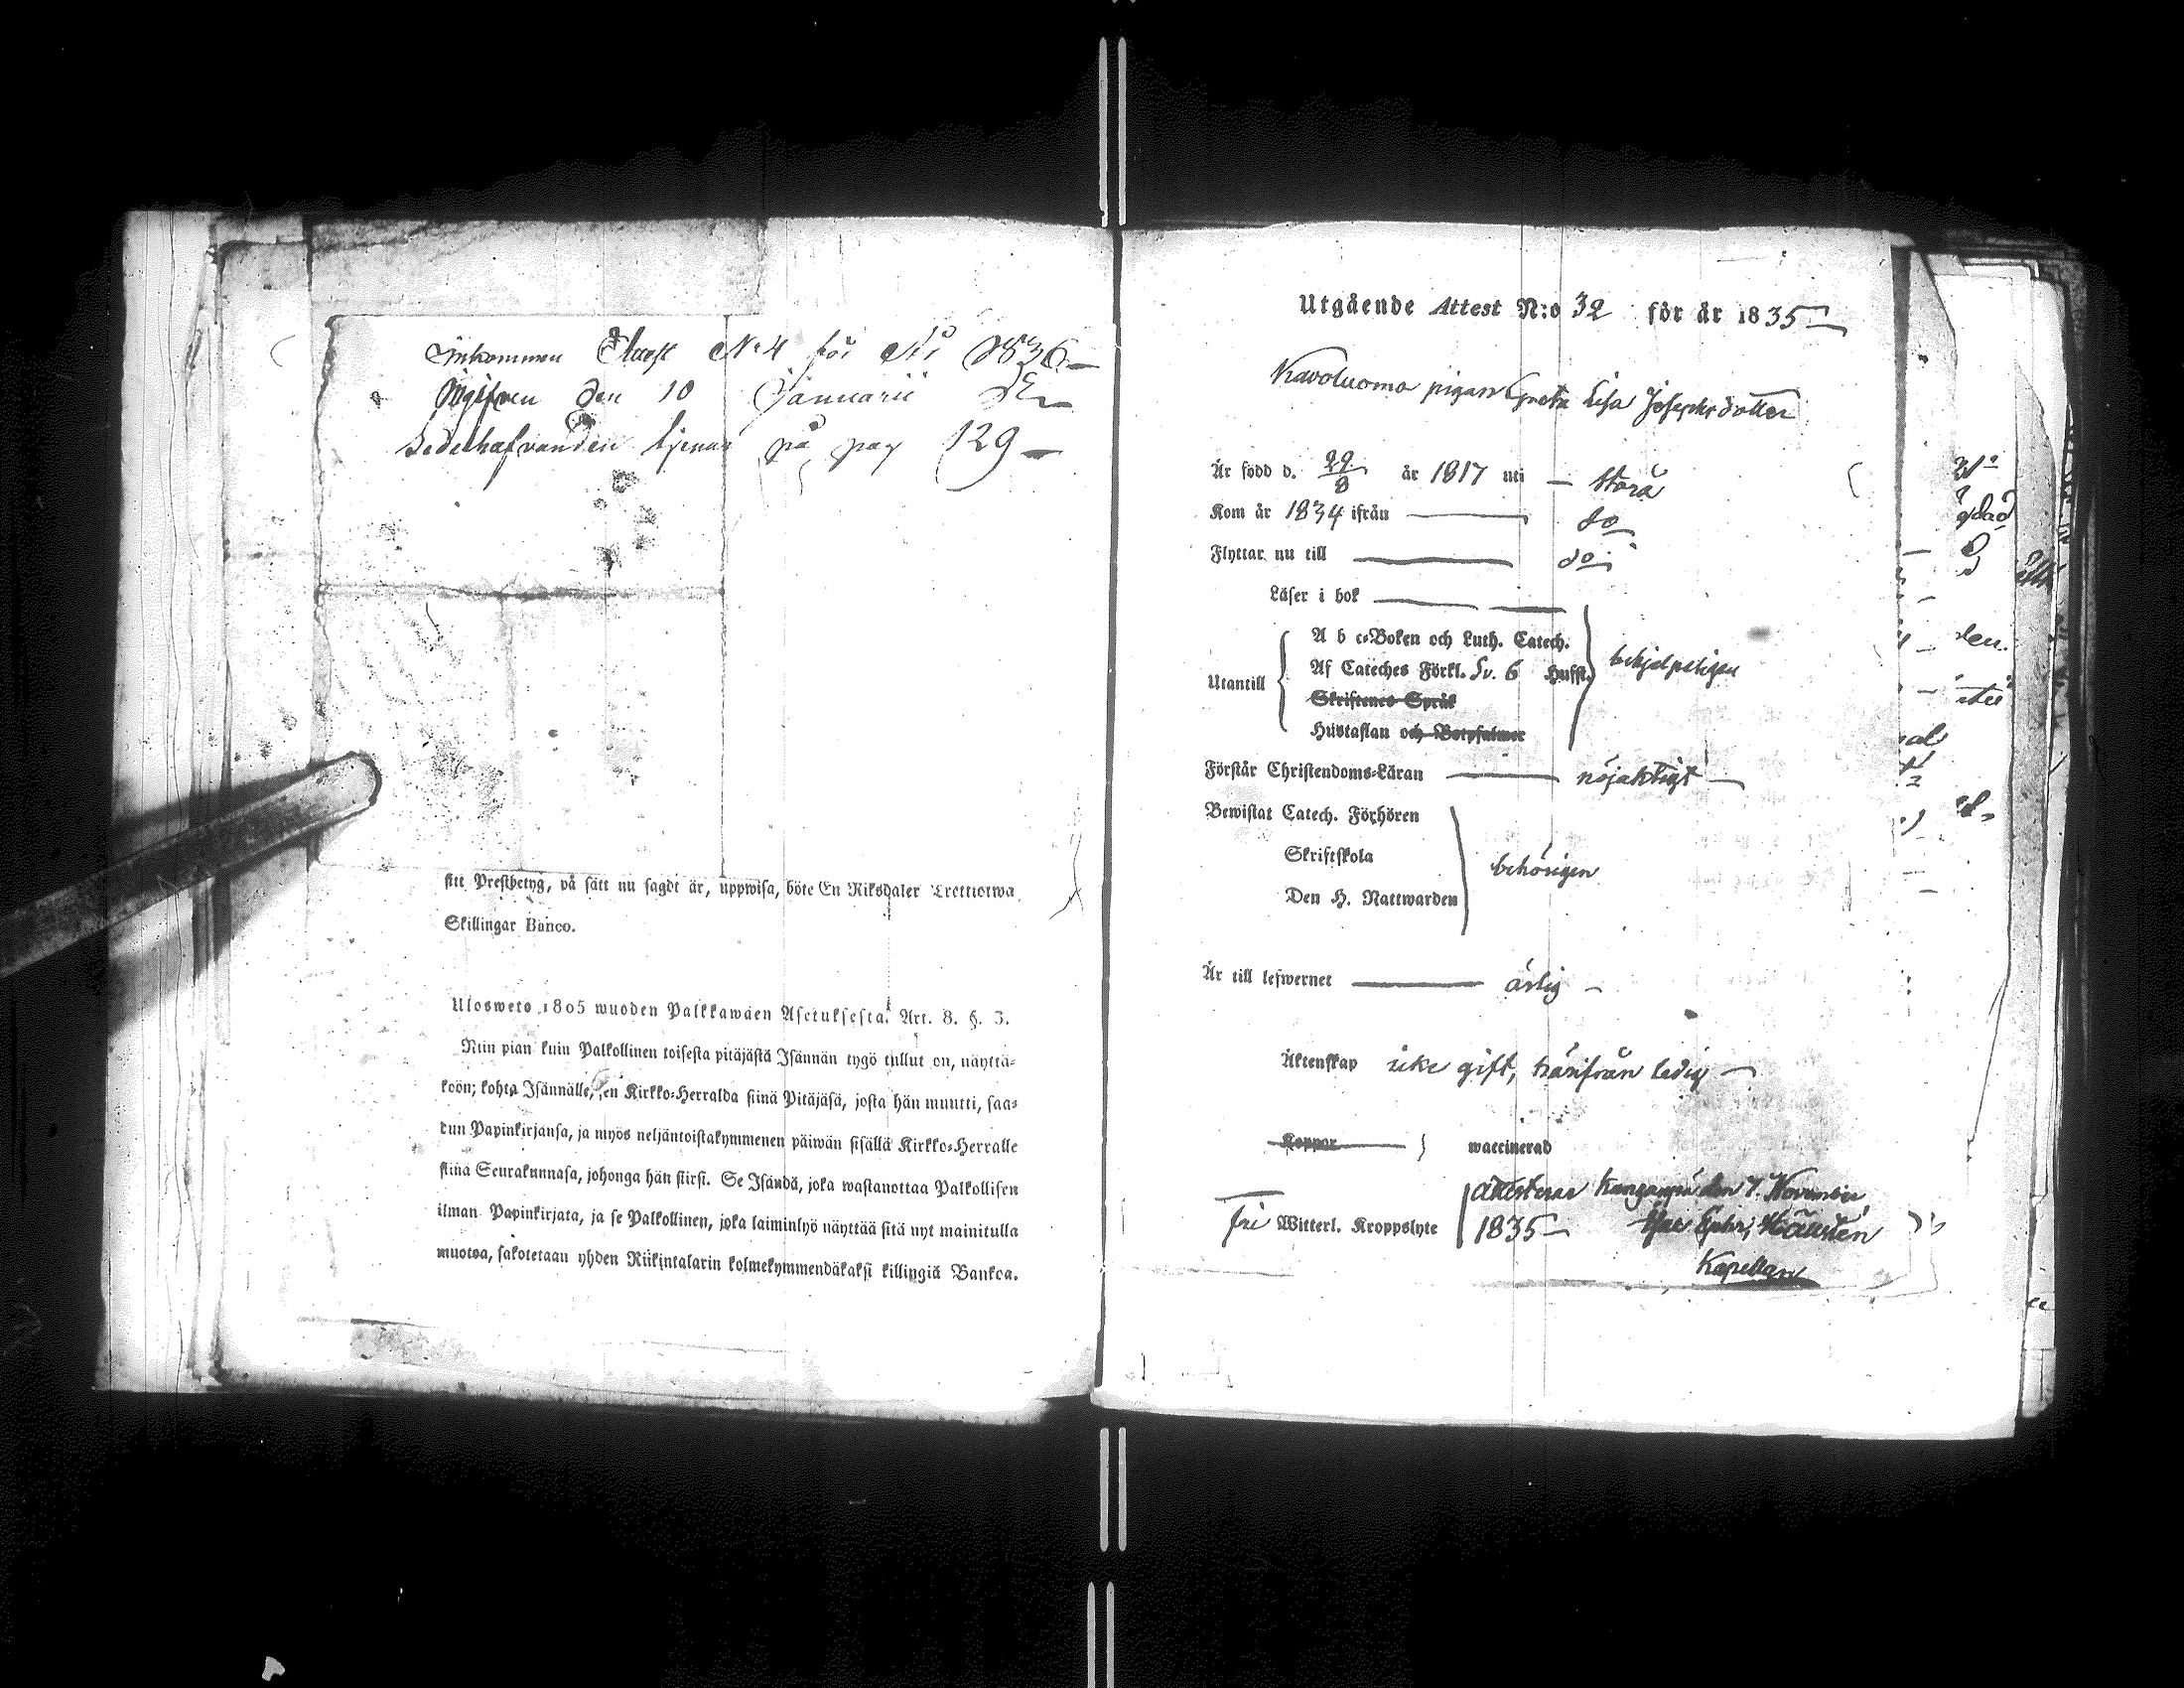 Inkommen Attest N:4 för År 1836
Uppgifven den 10 Januarii
Sedelhafvanden tjenar på pag 129
sitt Prestbetyg, på sätt nu sagdt är, uppwisa, böte En Riksdaler Trettiotwa
Skillingar Banco.
Ulosweto 1805 wuoden Palkkawäen Asetuksesta. Art. 8. §. 3.
Niin pian kuin Palkollinen toisesta pitäjästä Isännän tygö tullut on, näyttä-
köön; kohta Isännälle, sen Kirkko-Herralda siinä Pitäjäsä, josta hän muutti, saa-
dun Papinkirjansa, ja myös neljäntoistakymmenen päiwän sisällä Kirkko-Herralle
siinä Seurakunnasa, johonga hän siirsi. Se Isändä, joka wastanottaa Palkollisen
ilman Papinkirjata, ja se Palkollinen, joka laiminlyö näyttää sitä nyt mainitulla
muotoa, sakotetaan yhden Riikintalarin kolmekymmendäkaksi killingiä Bankoa.
Utgående Attest N:o 32 för år 1835
Kavoluoma pigan Greta Lisa Josephsdotter
Är född d. 29/8 år 1817 uti Storå
Kom år 1834 ifrån do
Flyttar nu till do
Läser i bok
Utantill
A b c-Boken och Luth. Catech.
Af Cateches Förkl. Sv. 6 Hufst. behjelpeligen
Skriftenes Språk
Hustaflan och Botpsalmer
Förstår Christendoms-Läran nöjaktigt
Bewistat Catech. Förhören
Skriftskola behörigen
Den H. Nattwarden
Är till lefwernet ärlig
Äktenskap icke gift, härifrån ledig
Koppor waccinerad
Attesteras Kangasjä den 7. November
fri Witterl. Kroppslyte 1835
Kapellan